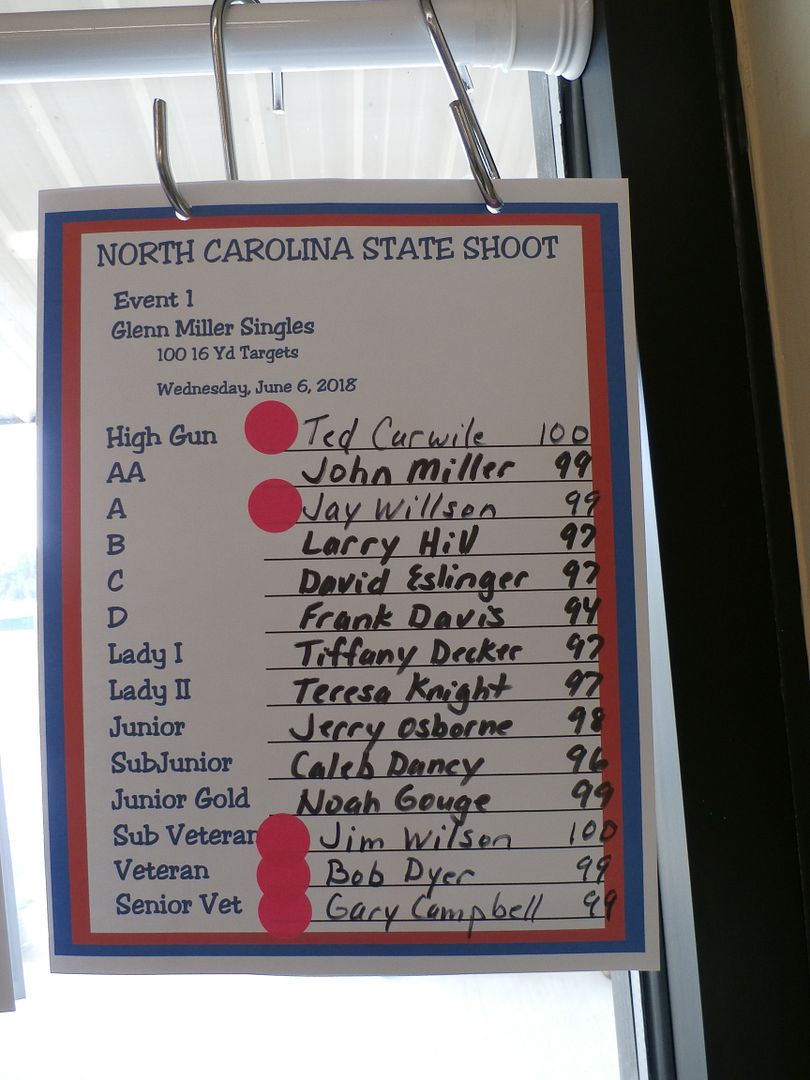 NORTH CAROLINA STATE SHOOT
Event 1
Glenn Miller Singles
100 16 Yd Targets
Wednesday, June 6, 2018
High Gun Ted Curwile 100
AA John Miller 99
A Jay Willson 99
B Larry Hill 97
C David Eslinger 97
D Frank Davis 94
Lady I Tiffany Decker 97
Lady II Teresa Knight 97
Junior Jerry Osborne 98
SubJunior Caleb Dancy 96
Junior Gold Noah Gouge 99
Sub Veteran Jim Wilson 100
Veteran Bob Dyer 99
Senior Vet Gary Campbell 99